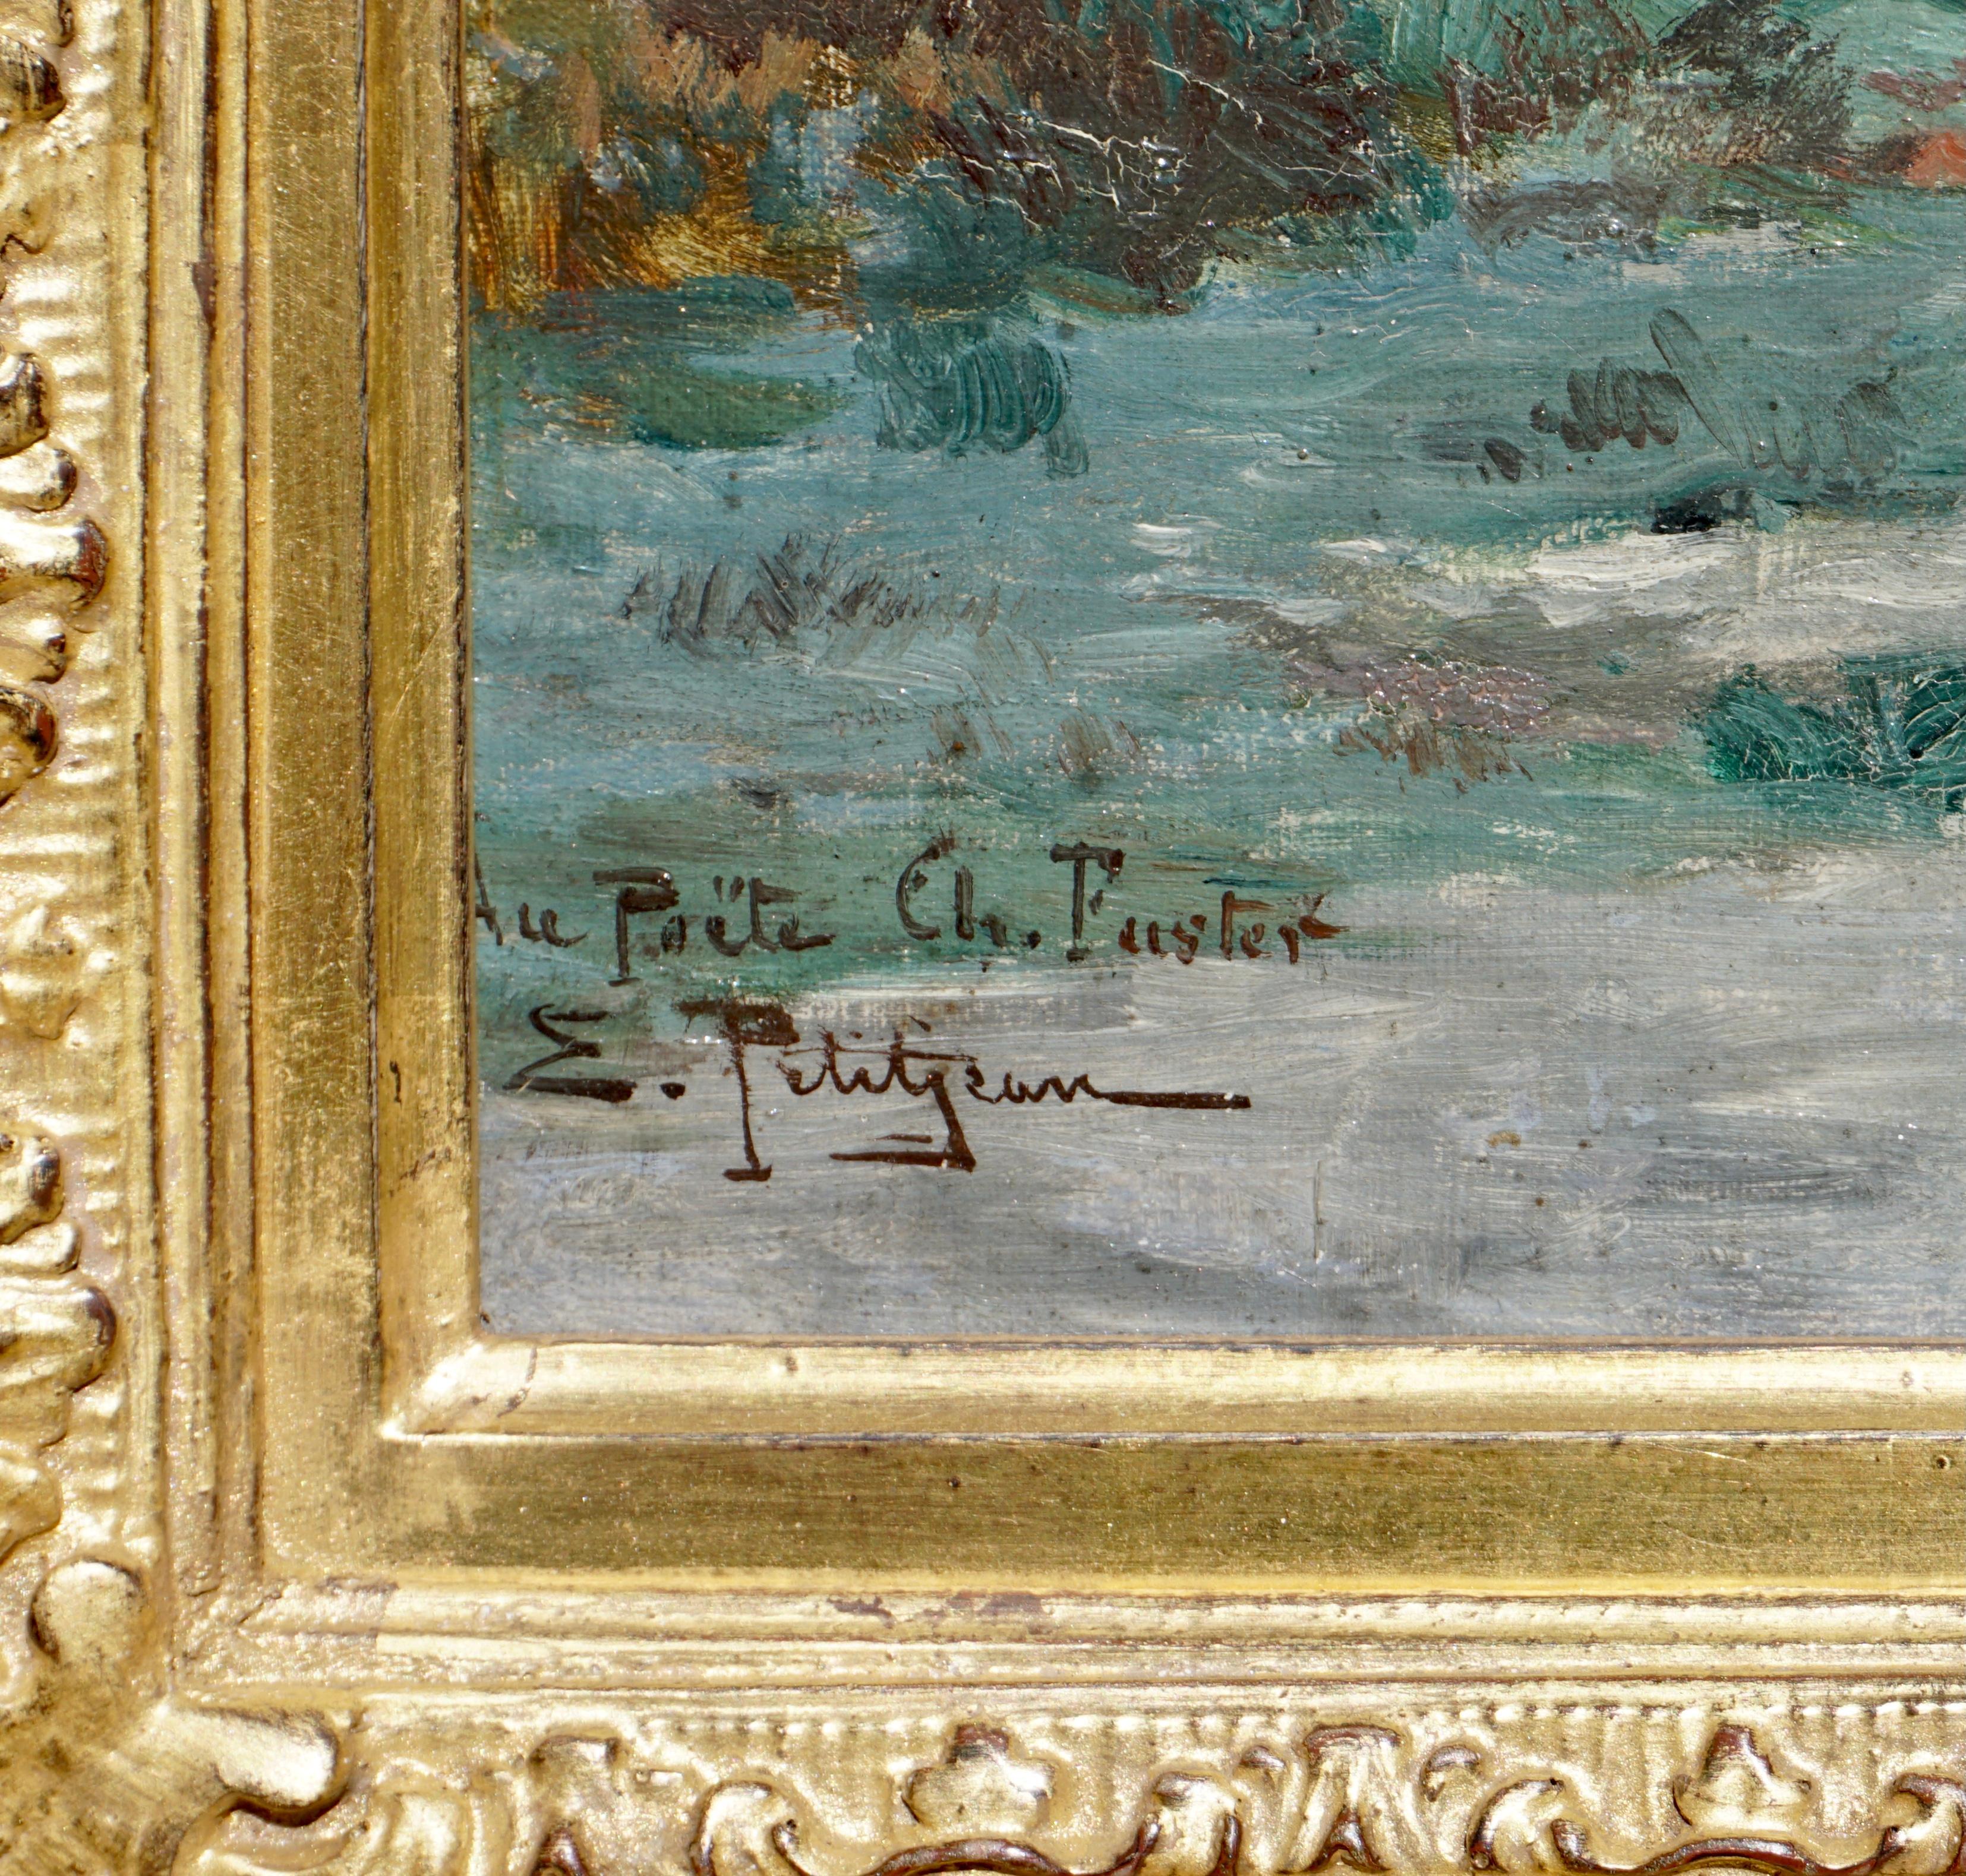 Au Poëte Ch. Fuster
E. Petitjean